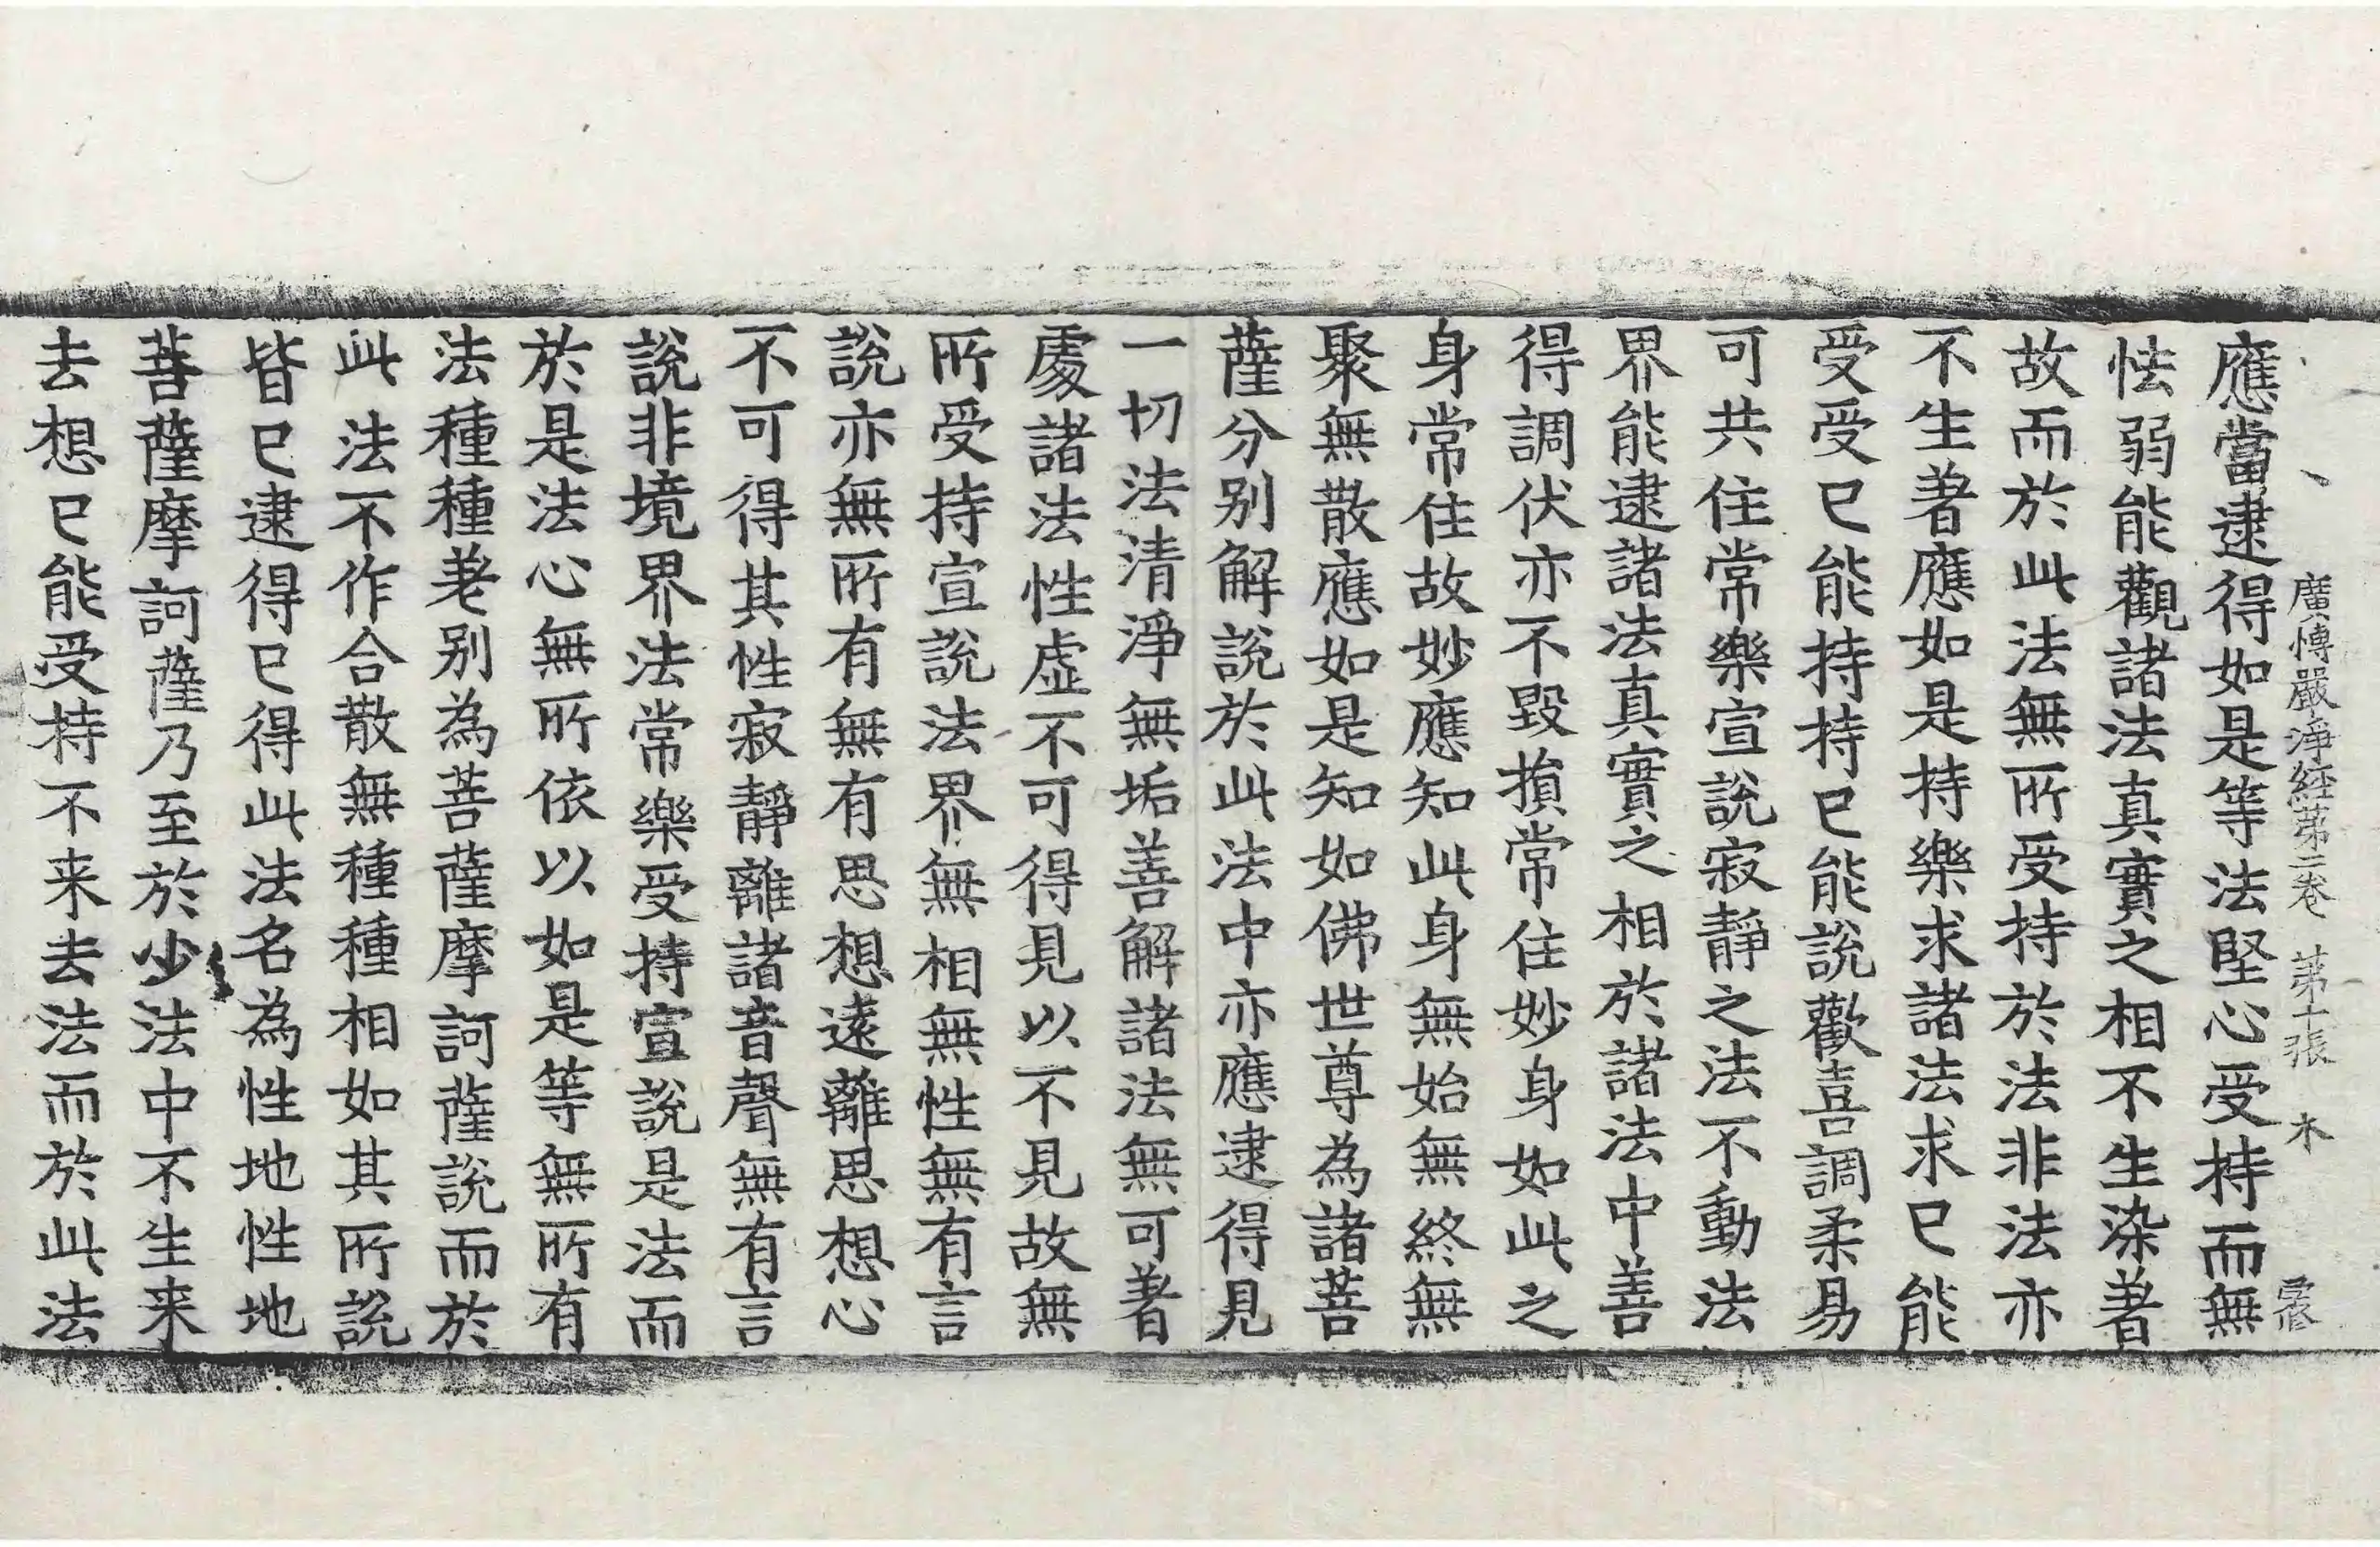 廣博嚴淨經第二卷 第十張 木
應當逮得如是等法堅心受持而無
怯弱能觀諸法真實之相不生染著
故而於此法無所受持於法非法亦
不生著應如是持樂求諸法求已能
受受已能持持已能說歡喜調柔易
可共住常樂宣說寂靜之法不動法
界能逮諸法真實之相於諸法中善
得調伏亦不毀損常住妙身如此之
身常住故妙應知此身無始無終無
聚無散應如是知如佛世尊為諸菩
薩分別解說於此法中亦應逮得見
一切法清淨無垢善解諸法無可著
處諸法性虛不可得見以不見故無
所受持宣說法界無相無性無有言
說亦無所有無有思想遠離思想心
不可得其性寂靜離諸音聲無有言
說非境界法常樂受持宣說是法而
於是法心無所依以如是等無所有
法種種差別為菩薩摩訶薩說而於
此法不作合散無種種相如其所說
皆已逮得已得此法名為性地性地
菩薩摩訶薩乃至於少法中不生来
去想已能受持不来去法而於此法